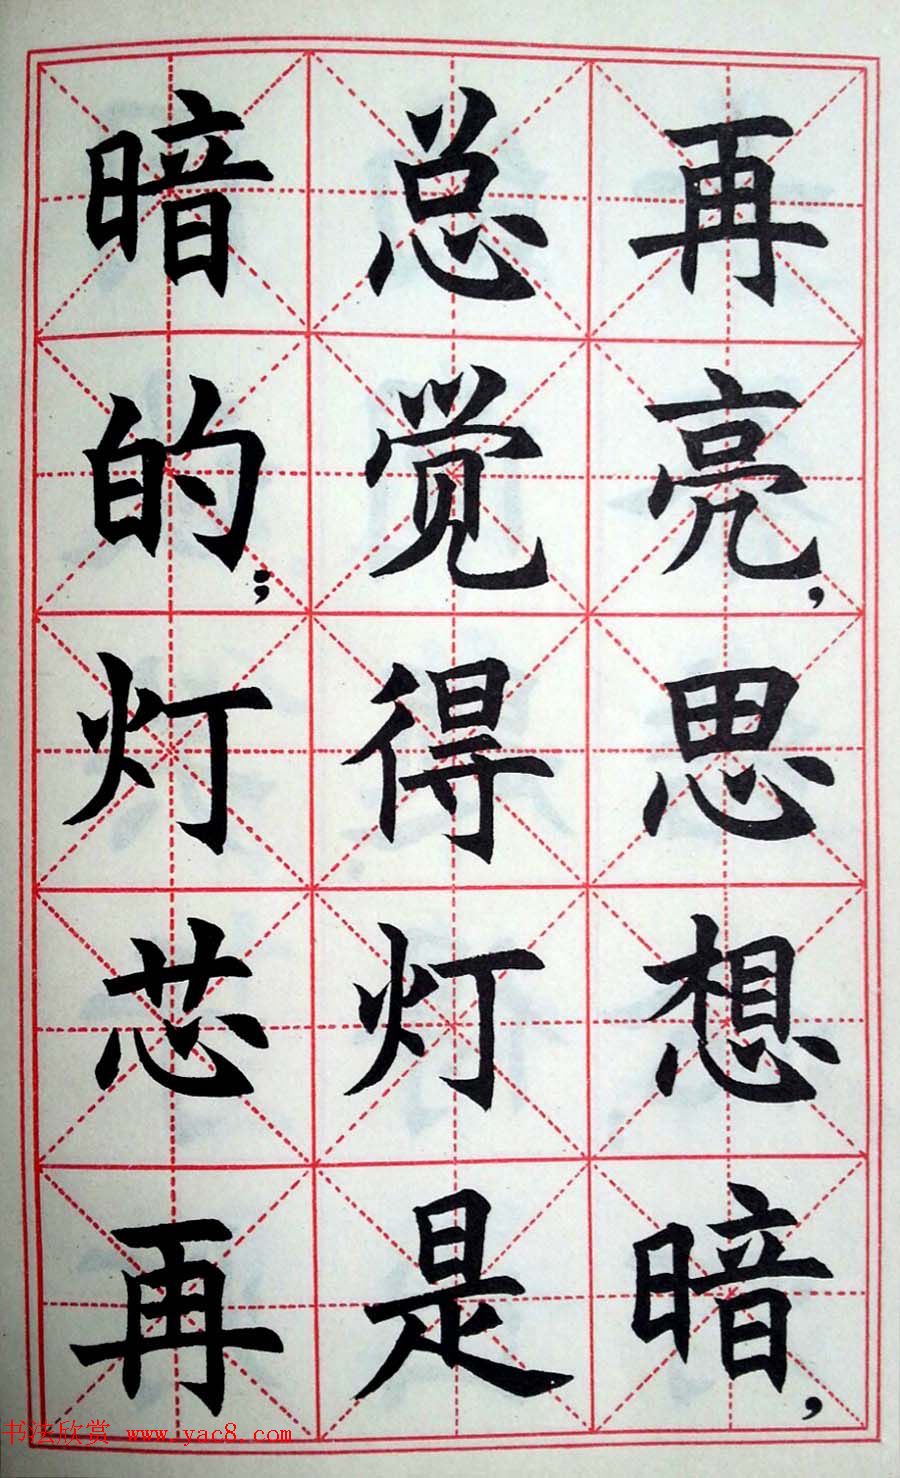 再亮,思想暗,
总觉得灯是
暗的;灯芯再
书法欣赏 www.yac8.com